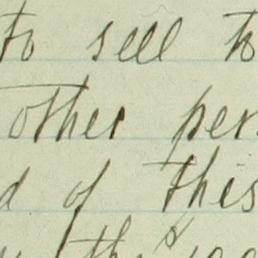 to sell to
other per
d of this
the